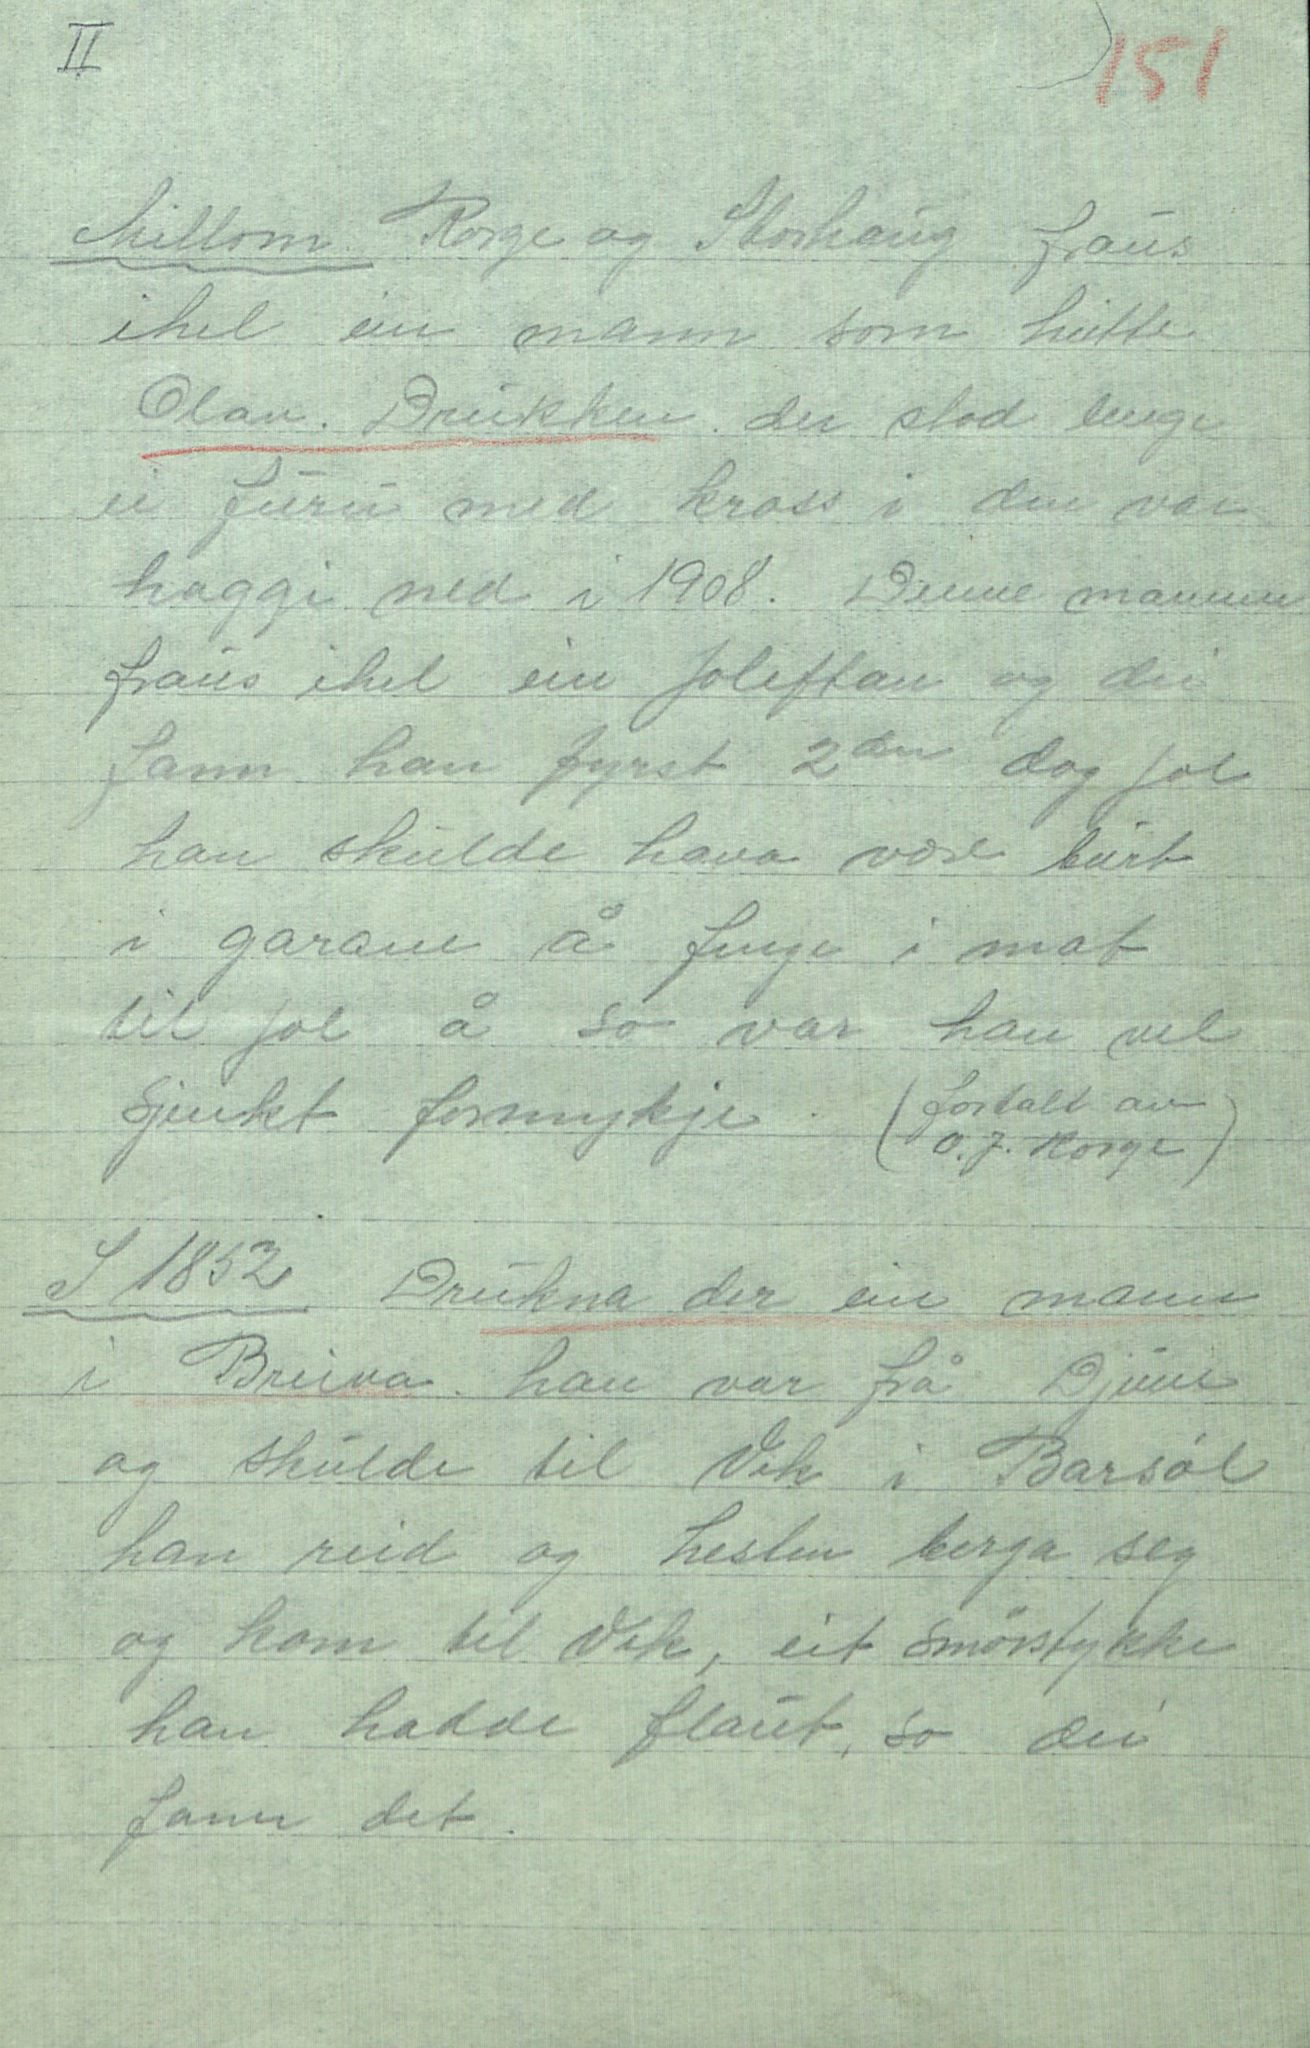 II
151
Millom Rorge og Storhaug fraus
ihel ein mann som heitte
Olav. Brukken. der stod lenge
ei furu med kross i den var
haggi ned i 1908. Denne mannen
fraus ihel ein Joleftan og dei
fann han fyrst 2den dag jol
han skulde hava vore burt
i garane å fenge i mat
til jol å so var han vel
sjenkt formykje. (fortalt av
O. J. Rorge)
I 1852 Drukna der ein mann
i Breiva. han var frå Djuve
og skulde til Vik i Barsøl
han reid og hesten berga seg
og kom til Vik, eit smörstykke
han hadde flaut, so dei
fann det.